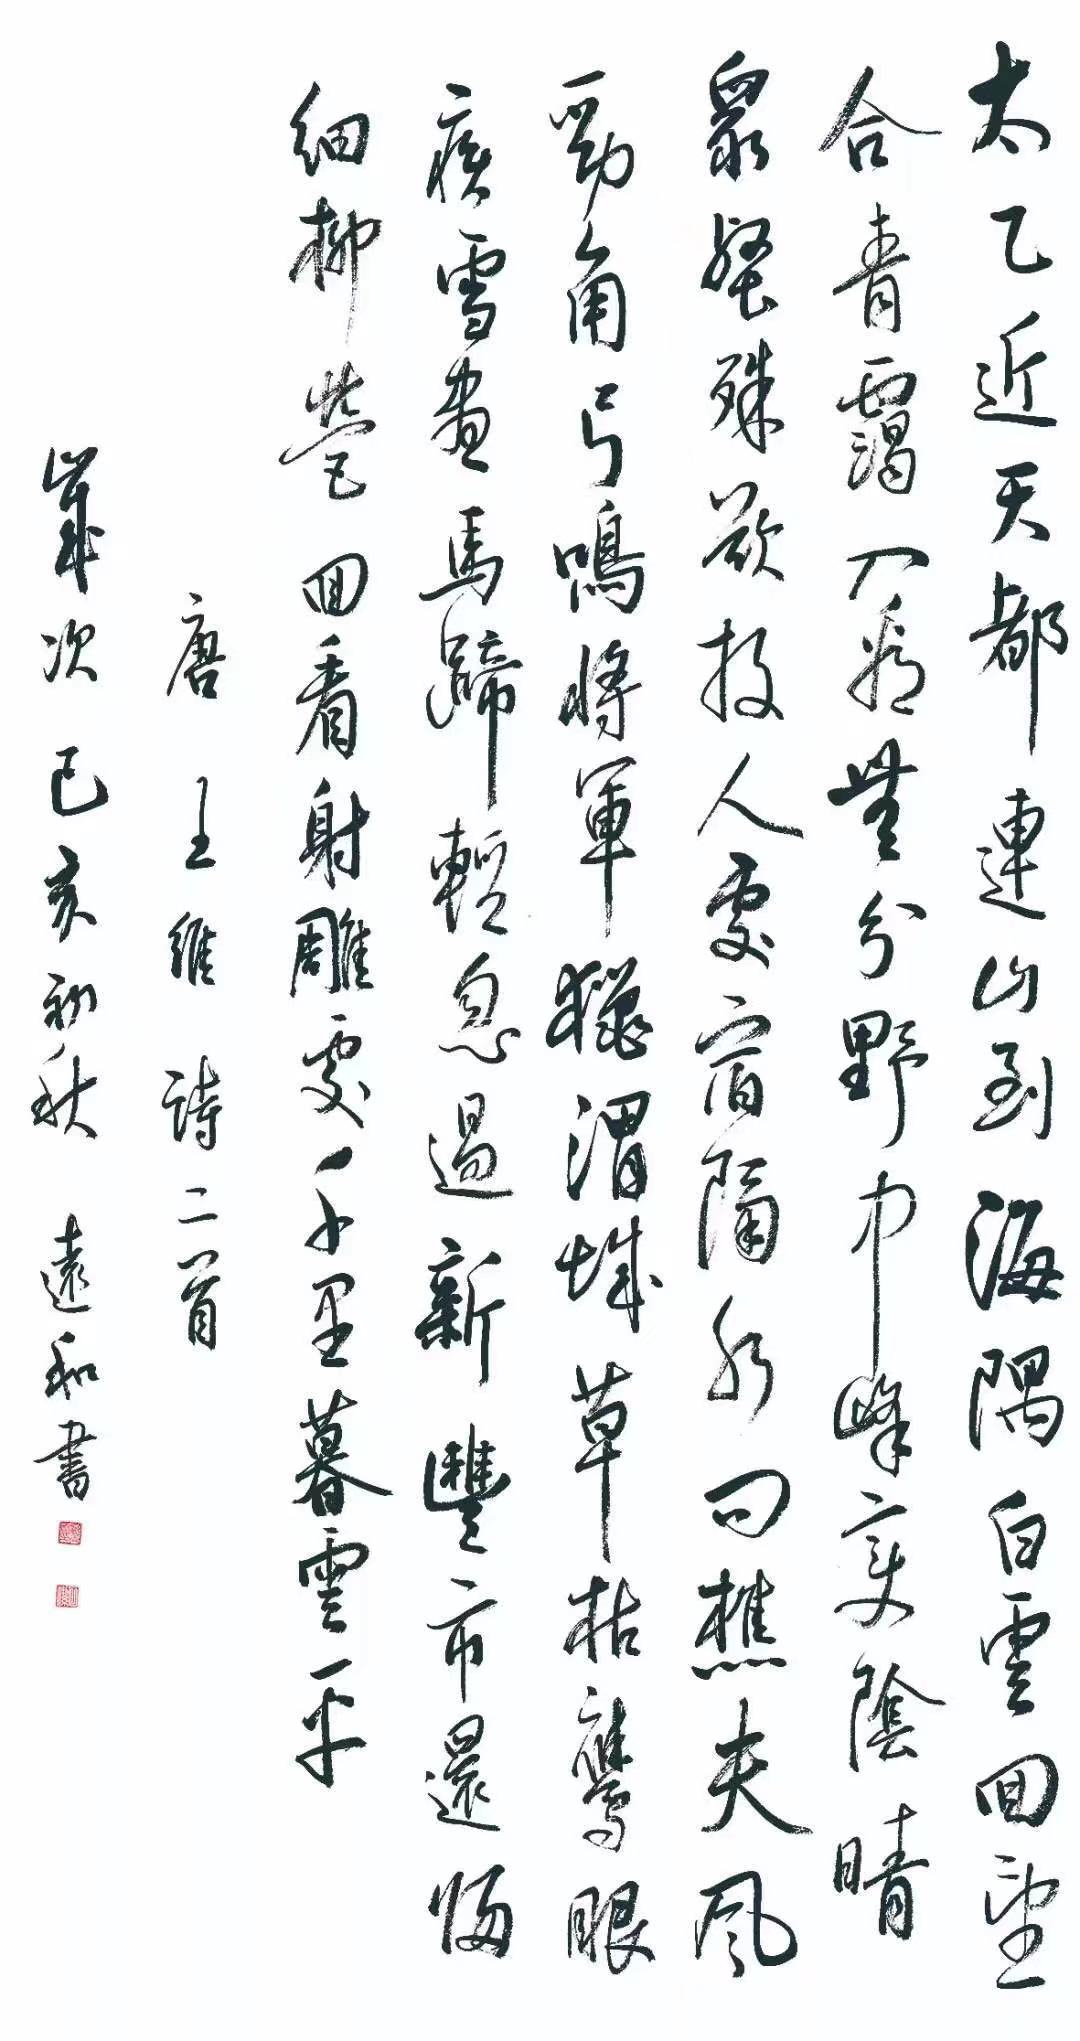 太乙近天都連山到海隅白雲回望
合青靄入看無分野中峰變陰晴
衆壑殊欲投人處宿隔水問樵夫風
勁角弓鳴將軍獵渭城草枯鷹眼
疾雪盡馬蹄輕忽過新豐市還歸
細柳營回看射雕處千里暮雲平
唐王維詩二首
歲次己亥初秋 遠和書